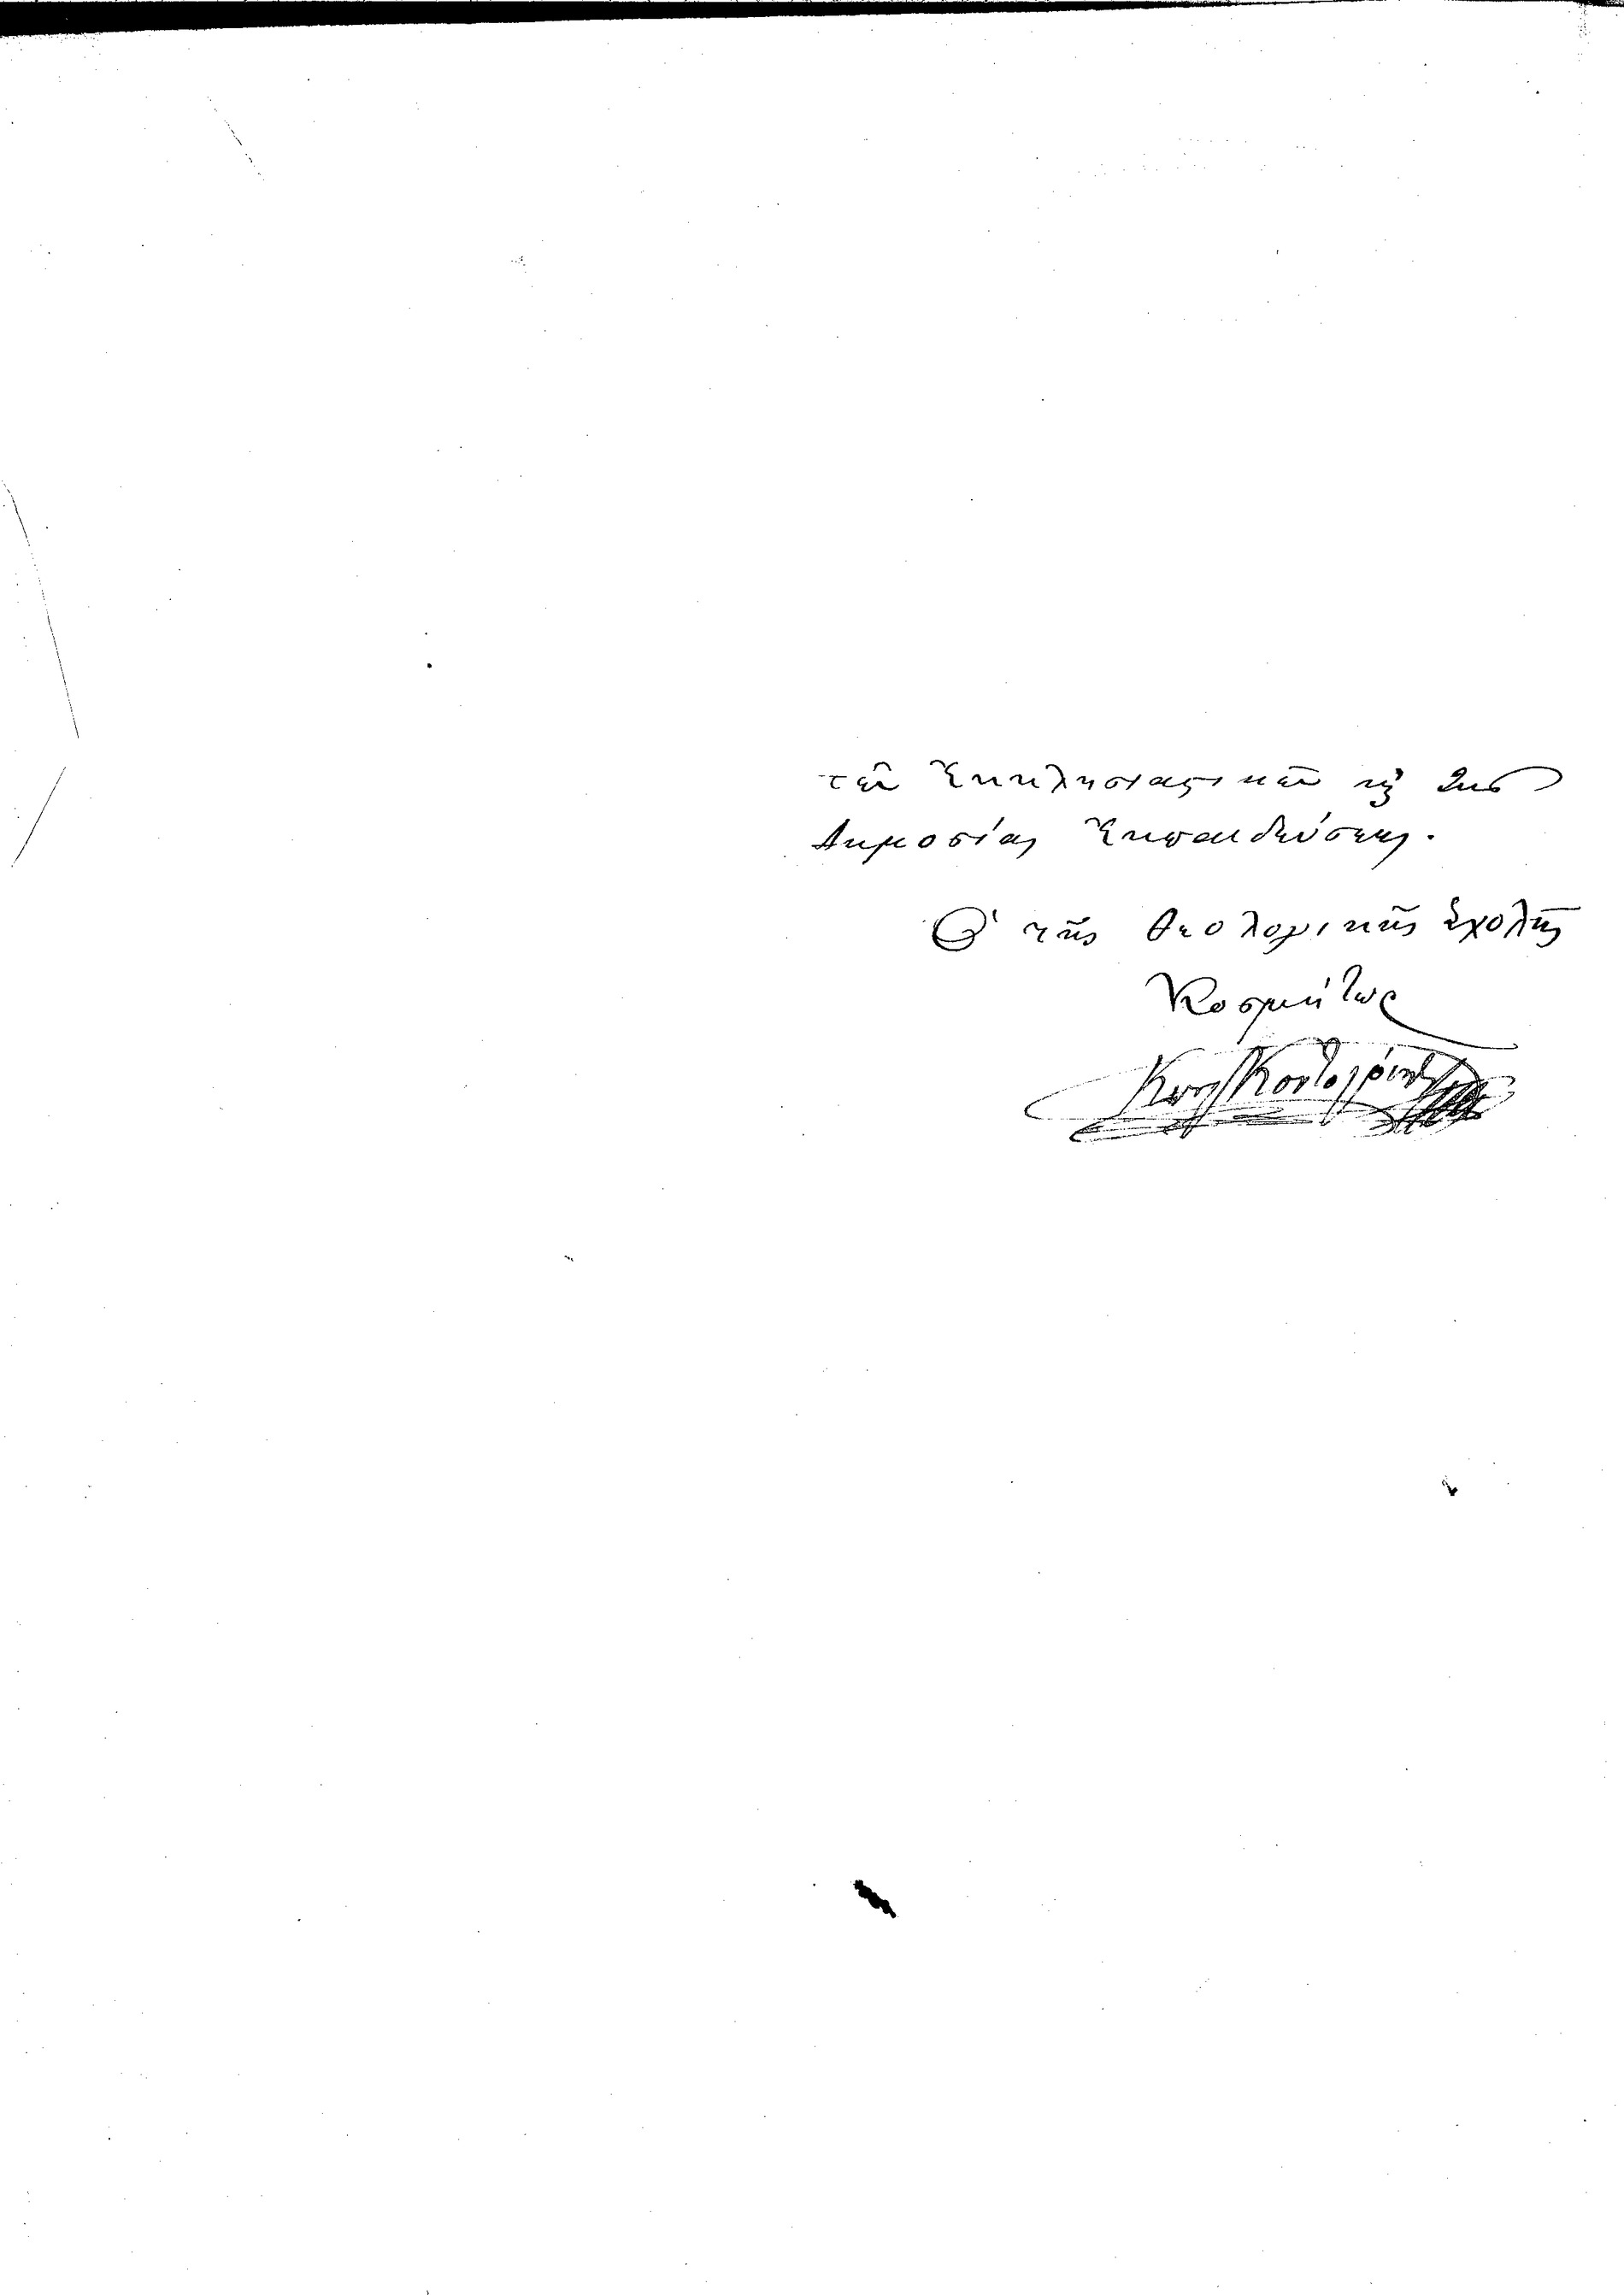 τῶν Ἐκκλησιαστικῶν κ τῆς
Δημοσίας Ἐκπαιδεύσεως.
Ὁ τῆς Θεολογικῆς Σχολῆς
Κοσμήτωρ
Κοντογόνης